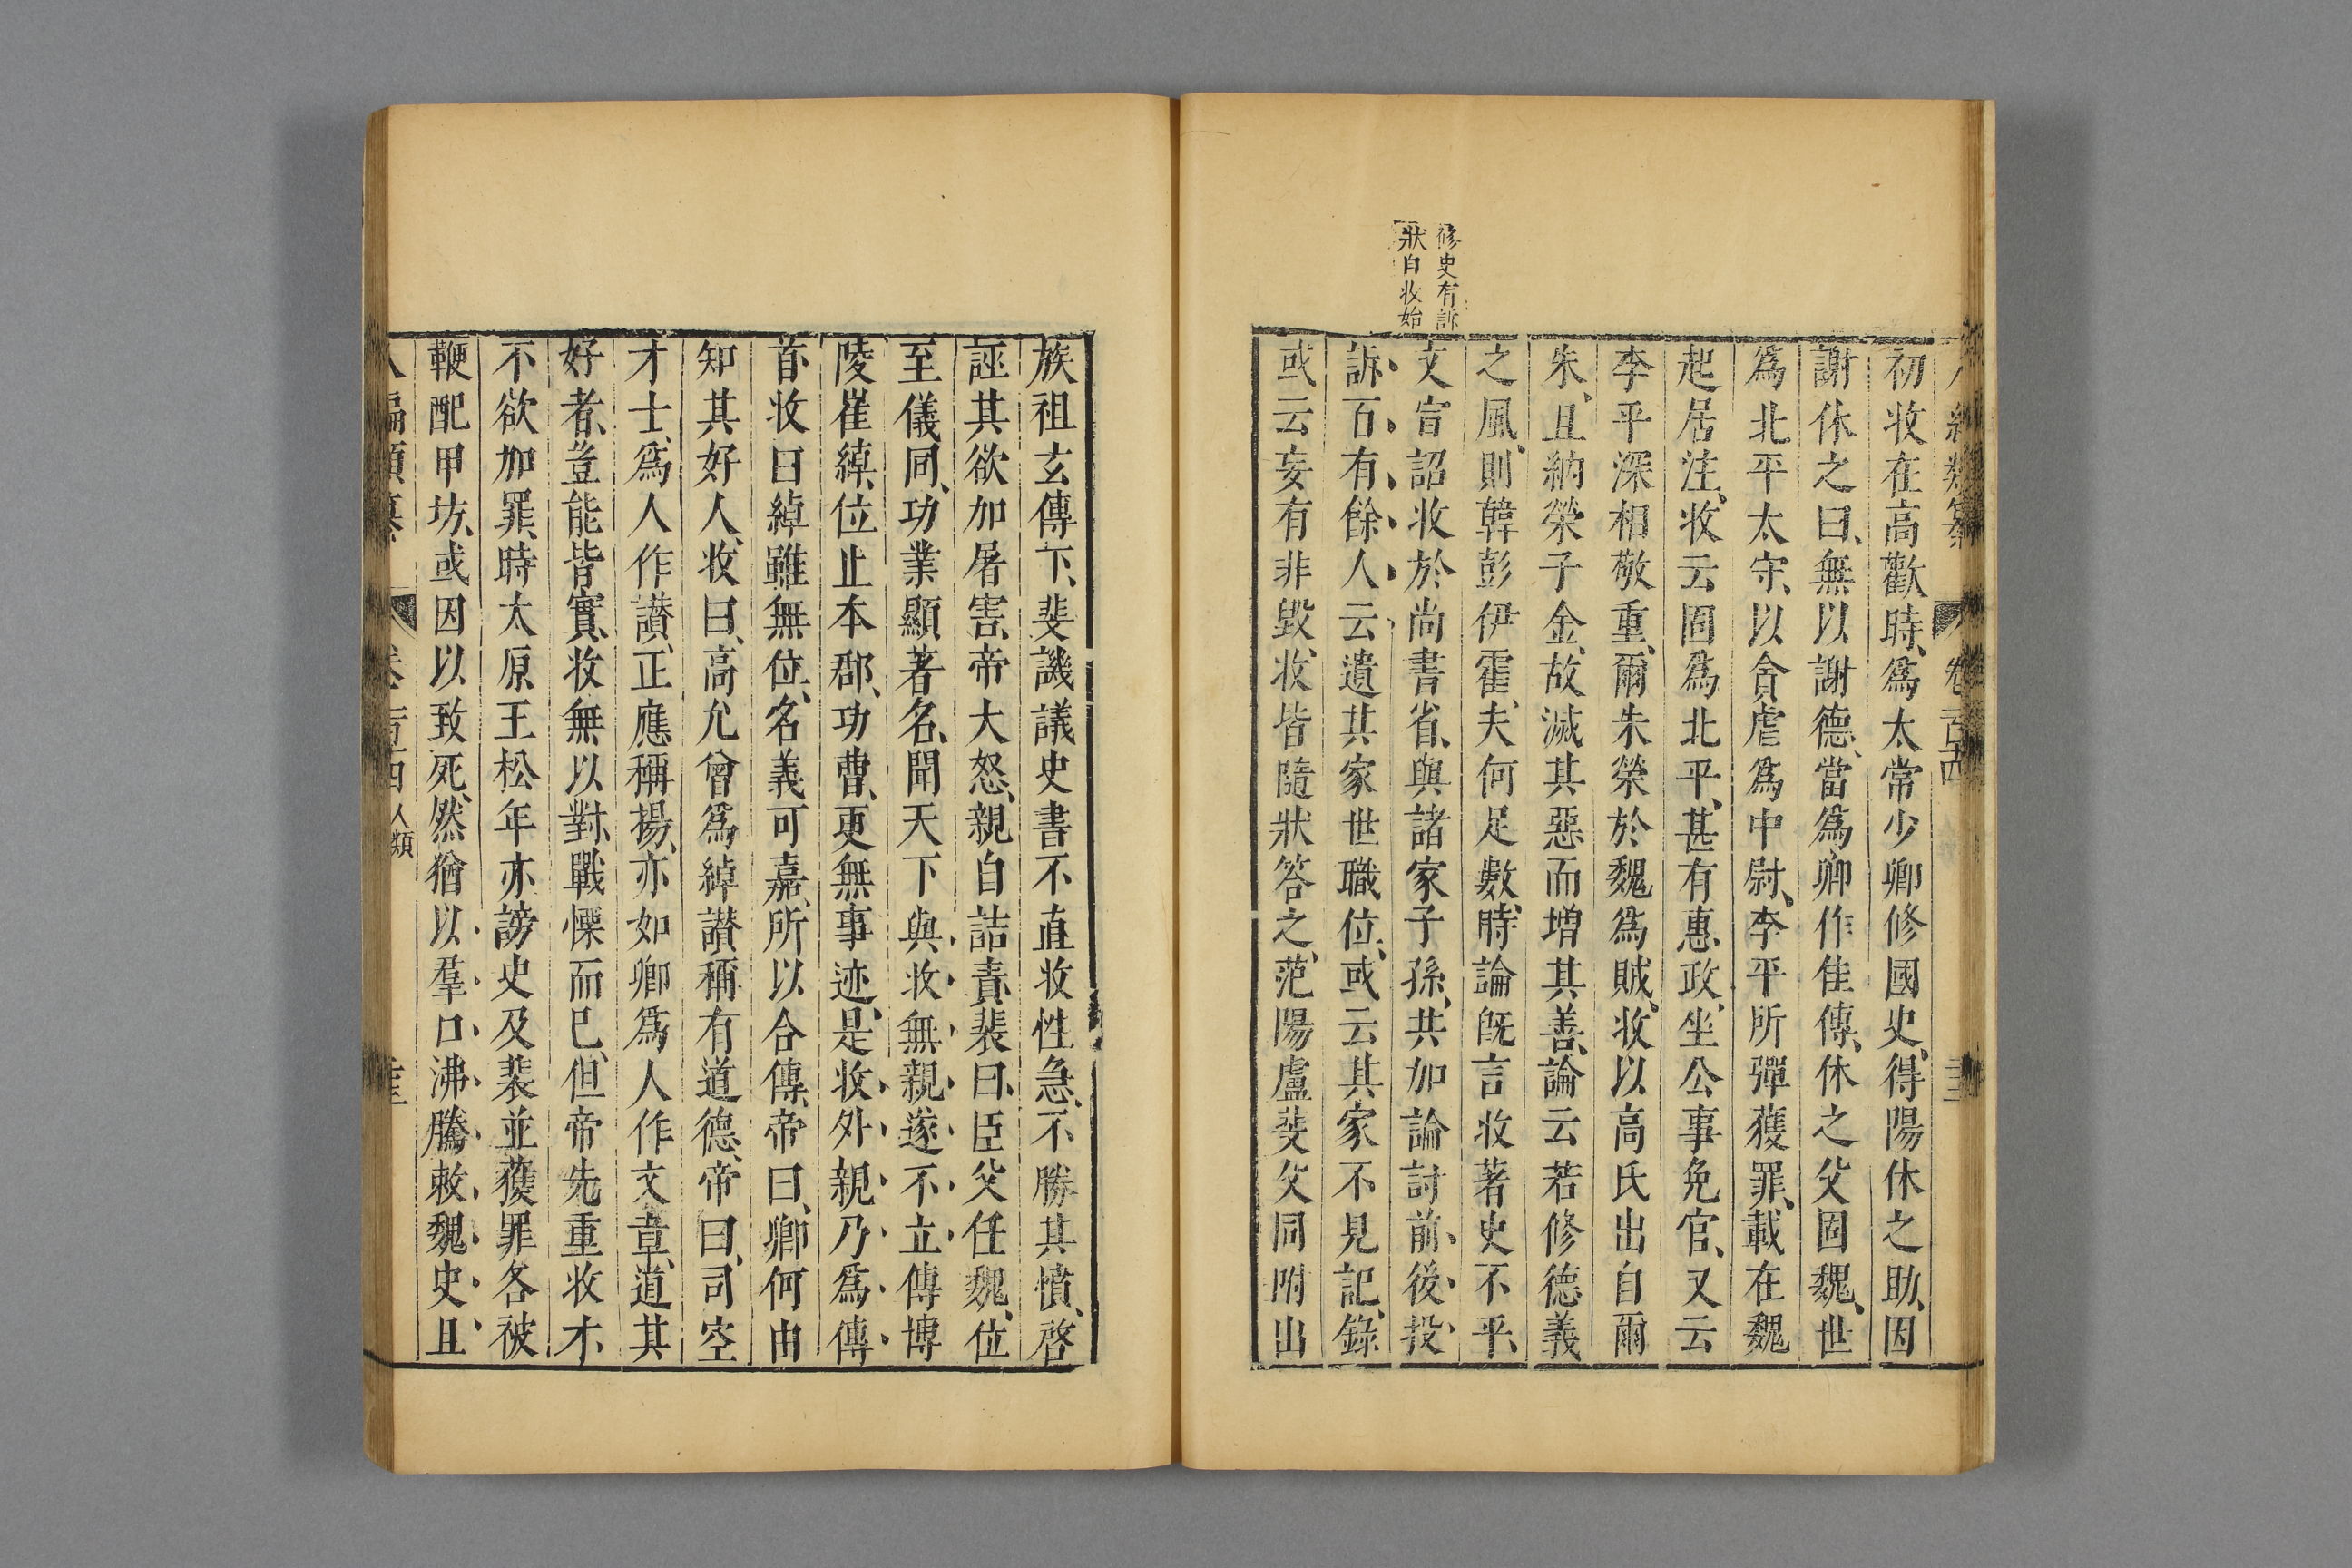 修史有訴
狀自收始
初收在高歡時、爲太常少卿修國史、得陽休之助、因
謝休之曰、無以謝德、當爲卿作佳傳、休之父固魏、世
爲北平太守、以貪虐爲中尉、李平所彈獲罪、載在魏
起居注、收云固爲北平、甚有惠政、坐公事免官、又云
李平深相敬重、爾朱榮於魏爲賊、收以高氏出自爾
朱、且納榮子金、故滅其惡而增其善、論云若修德義
之風、則韓彭伊霍、夫何足數、時論旣言收著史不平、
文宣詔收於尚書省、與諸家子孫、共加論討前後投
訴百有餘人云遺其家世職位、或云其家不見記、錄
或云妄有非毀、收皆隨狀答之、范陽盧斐父同附出
族祖玄傳下、斐譏議史書不直收性急、不勝其憤、啓
誣其欲加屠害、帝大怒、親自詰責、裴曰、臣父任魏、位
至儀同、功業顯著名、聞天下與收無親遂不立傳博
陵崔綽、位止本郡、功曹、更無事迹、是收外親乃爲傳
首、收曰綽雖無位、名義可嘉、所以合傳、帝曰、卿何由
知其好人、收曰、高允曾爲綽讃稱有道德、帝曰、司空
才士、爲人作讃、正應稱揚、亦如卿爲人作文章、道其
好者、豈能皆實、收無以對、戰慄而已、但帝先重收才
不欲加罪、時太原王松年亦謗史及裴並獲罪各被
鞭配甲坊、或因以致死、然猶以羣口沸騰敕魏史、且
卷一百四 人類